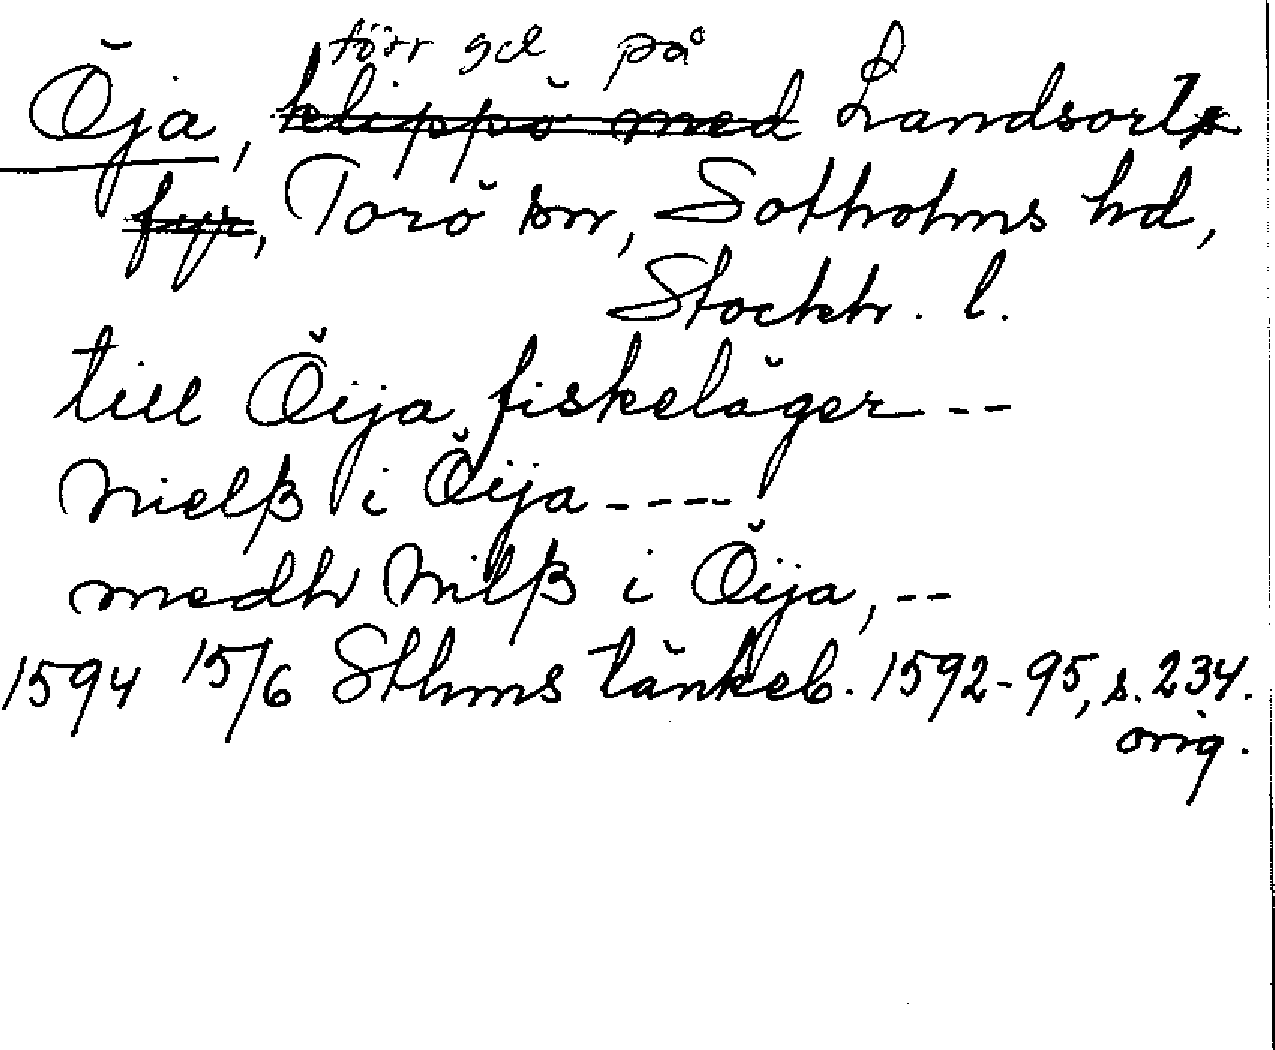 förr gd på
Öja, klippö med Landsorts
fyr, Torö sn, Sotholms hd,
Stockh. l.
till Öija fiskeläger - -
Nielß i Öija - - - -
medh Nilß i Öija, - -
1594 15/6 Sthms tänkeb. 1592-95, s. 234.
orig.